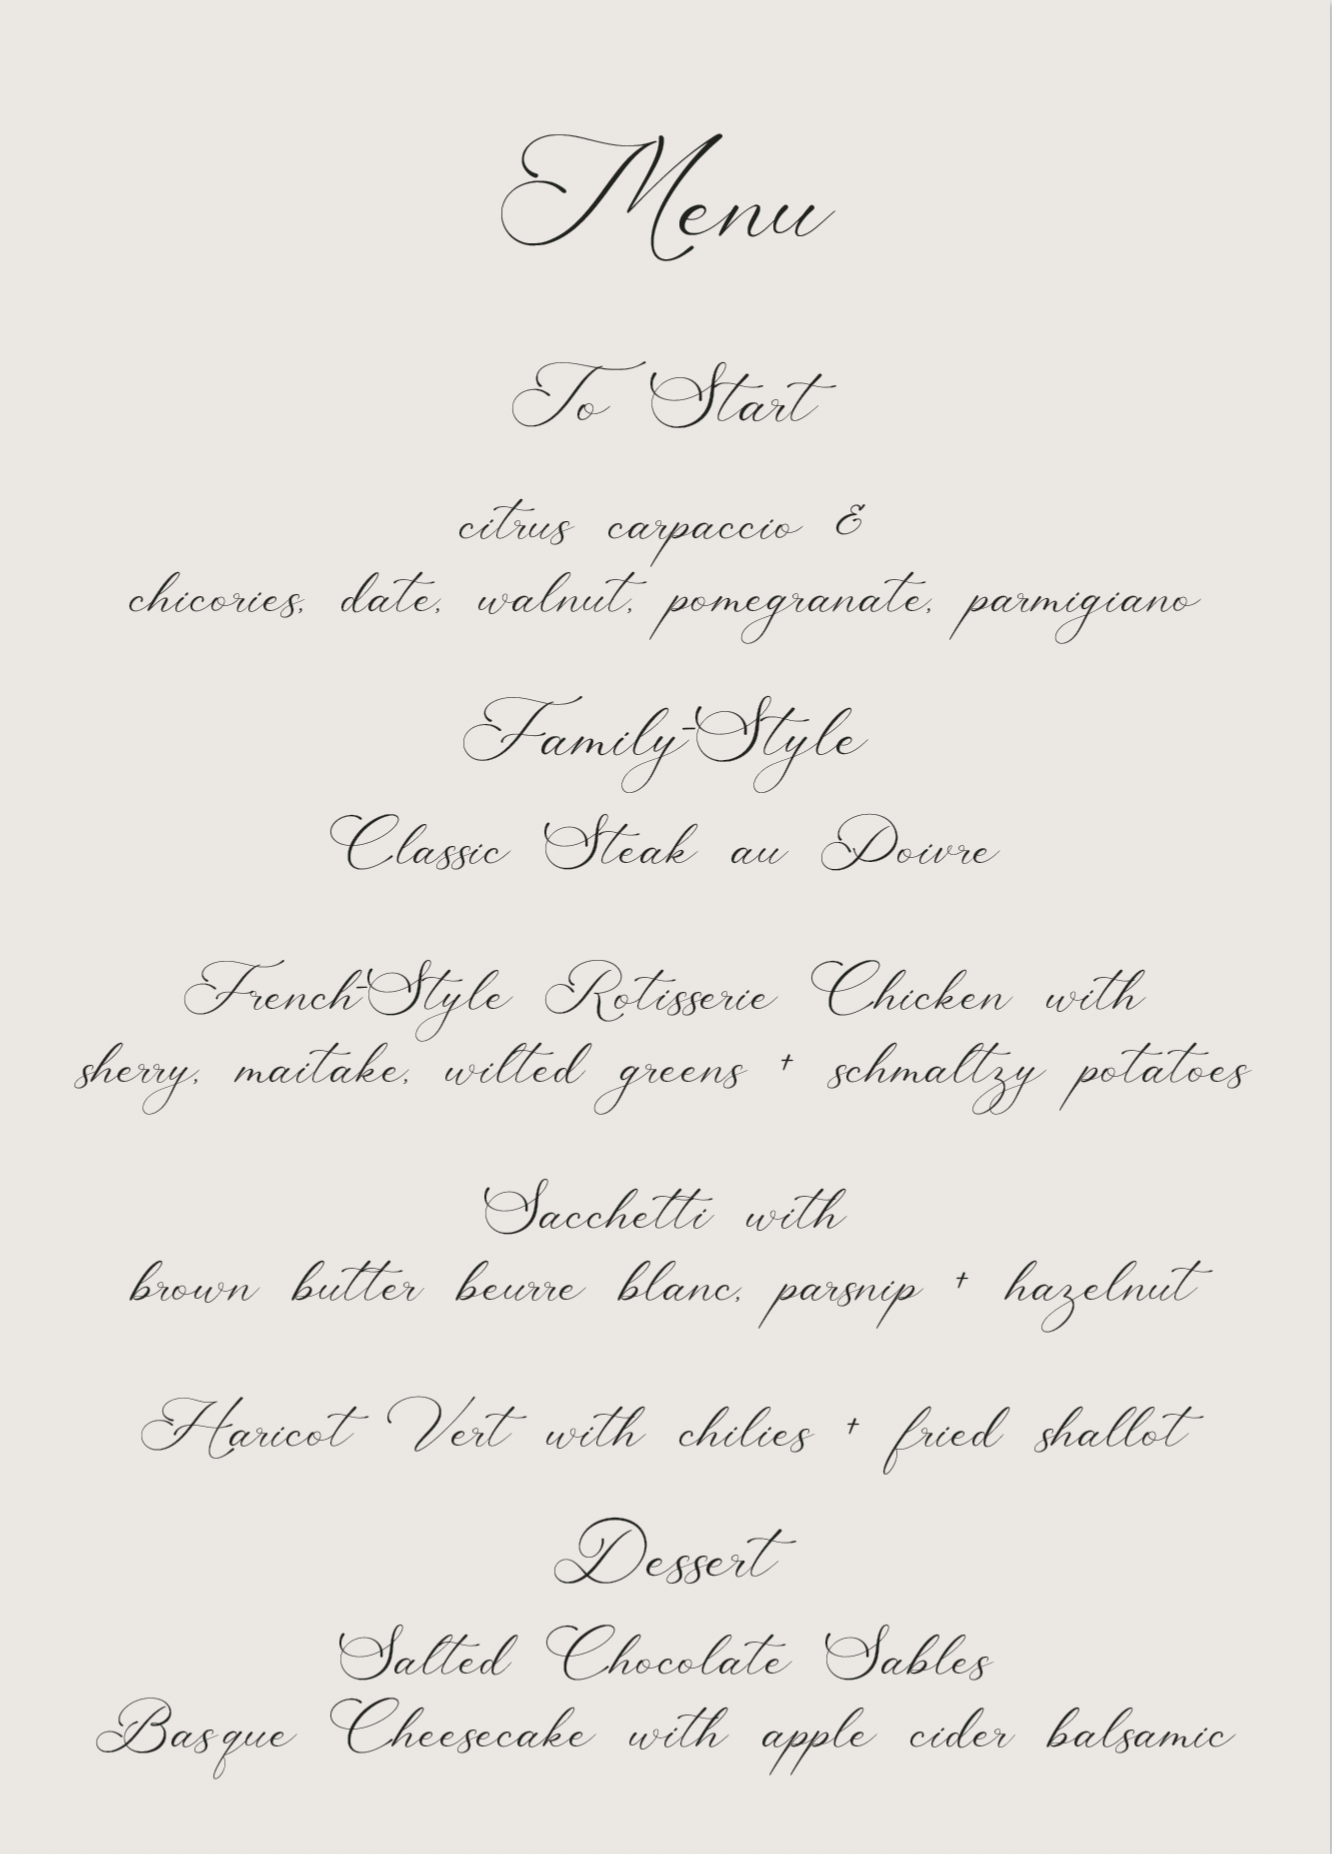 Menu
To Start
citrus carpaccio &
chicories, date, walnut, pomegranate, parmigiano
Family-Style
Classic Steak au Poivre
French-Style Rotisserie Chicken with
sherry, maitake, wilted greens + schmaltzy potatoes
Sacchetti with
brown butter beurre blanc, parsnip + hazelnut
Haricot Vert with chilies + fried shallot
Dessert
Salted Chocolate Sables
Basque Cheesecake with apple cider balsamic